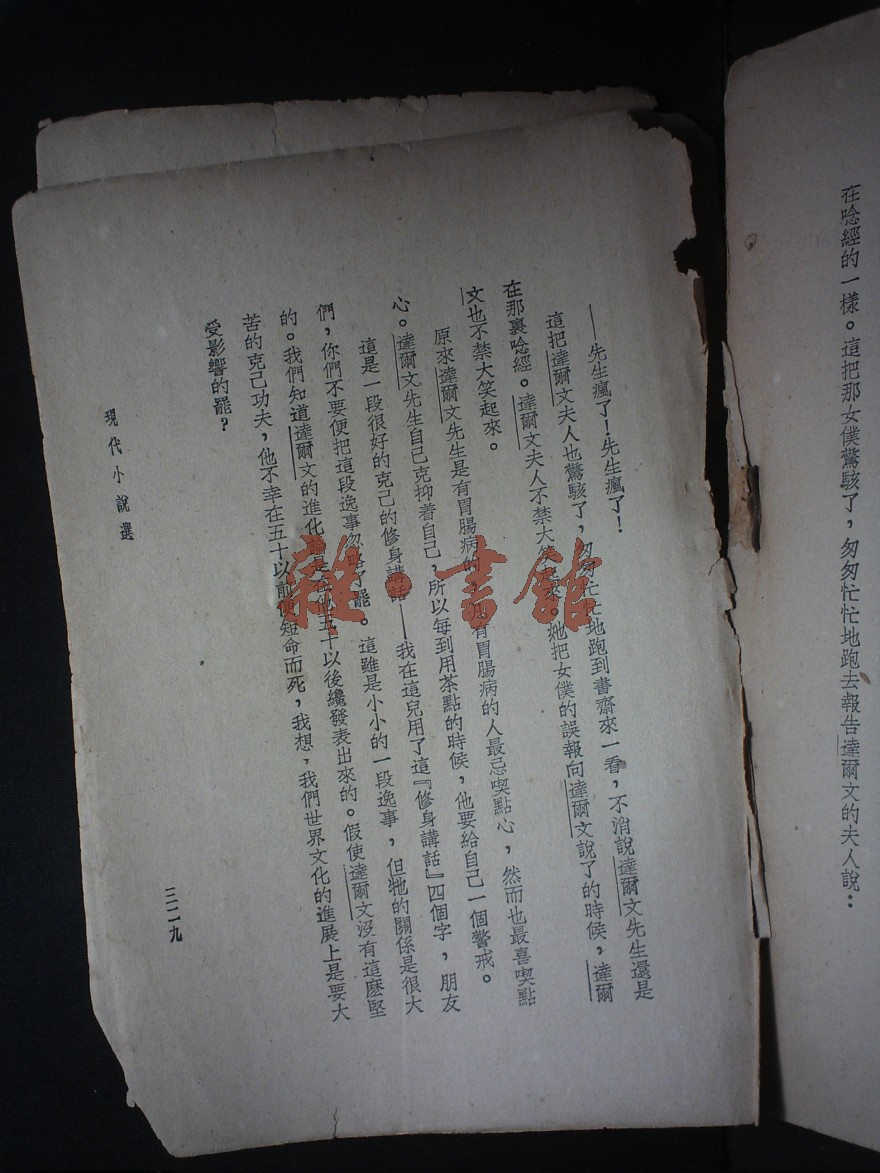 在唸經的一樣。這把那女僕驚駭了，匆匆忙忙地跑去報告達爾文的夫人說：
——先生瘋了！先生瘋了！
這把達爾文夫人也驚駭了，匆匆忙忙地跑到書齋來一看，不消說達爾文先生還是
在那裏唸經。達爾文夫人不禁大笑起來。她把女僕的誤報向達爾文說了的時候，達爾
文也不禁大笑起來。
原來達爾文先生是有胃腸病的，有胃腸病的人最忌喫點心，然而也最喜喫點
心。達爾文先生自己克抑着自己，所以每到用茶點的時候，他要給自己一個警戒。
這是一段很好的克己的修身講話——我在這兒用了這『修身講話』四個字，朋友
們，你們不要便把這段逸事忽略了罷。這雖是小小的一段逸事，但牠的關係是很大
的。我們知道達爾文的進化論是五十以後纔發表出來的。假使達爾文沒有這麼堅
苦的克己功夫，他不幸在五十以前便短命而死，我想，我們世界文化的進展上是要大
受影響的罷？
現代小說選
三二九
雜·書館